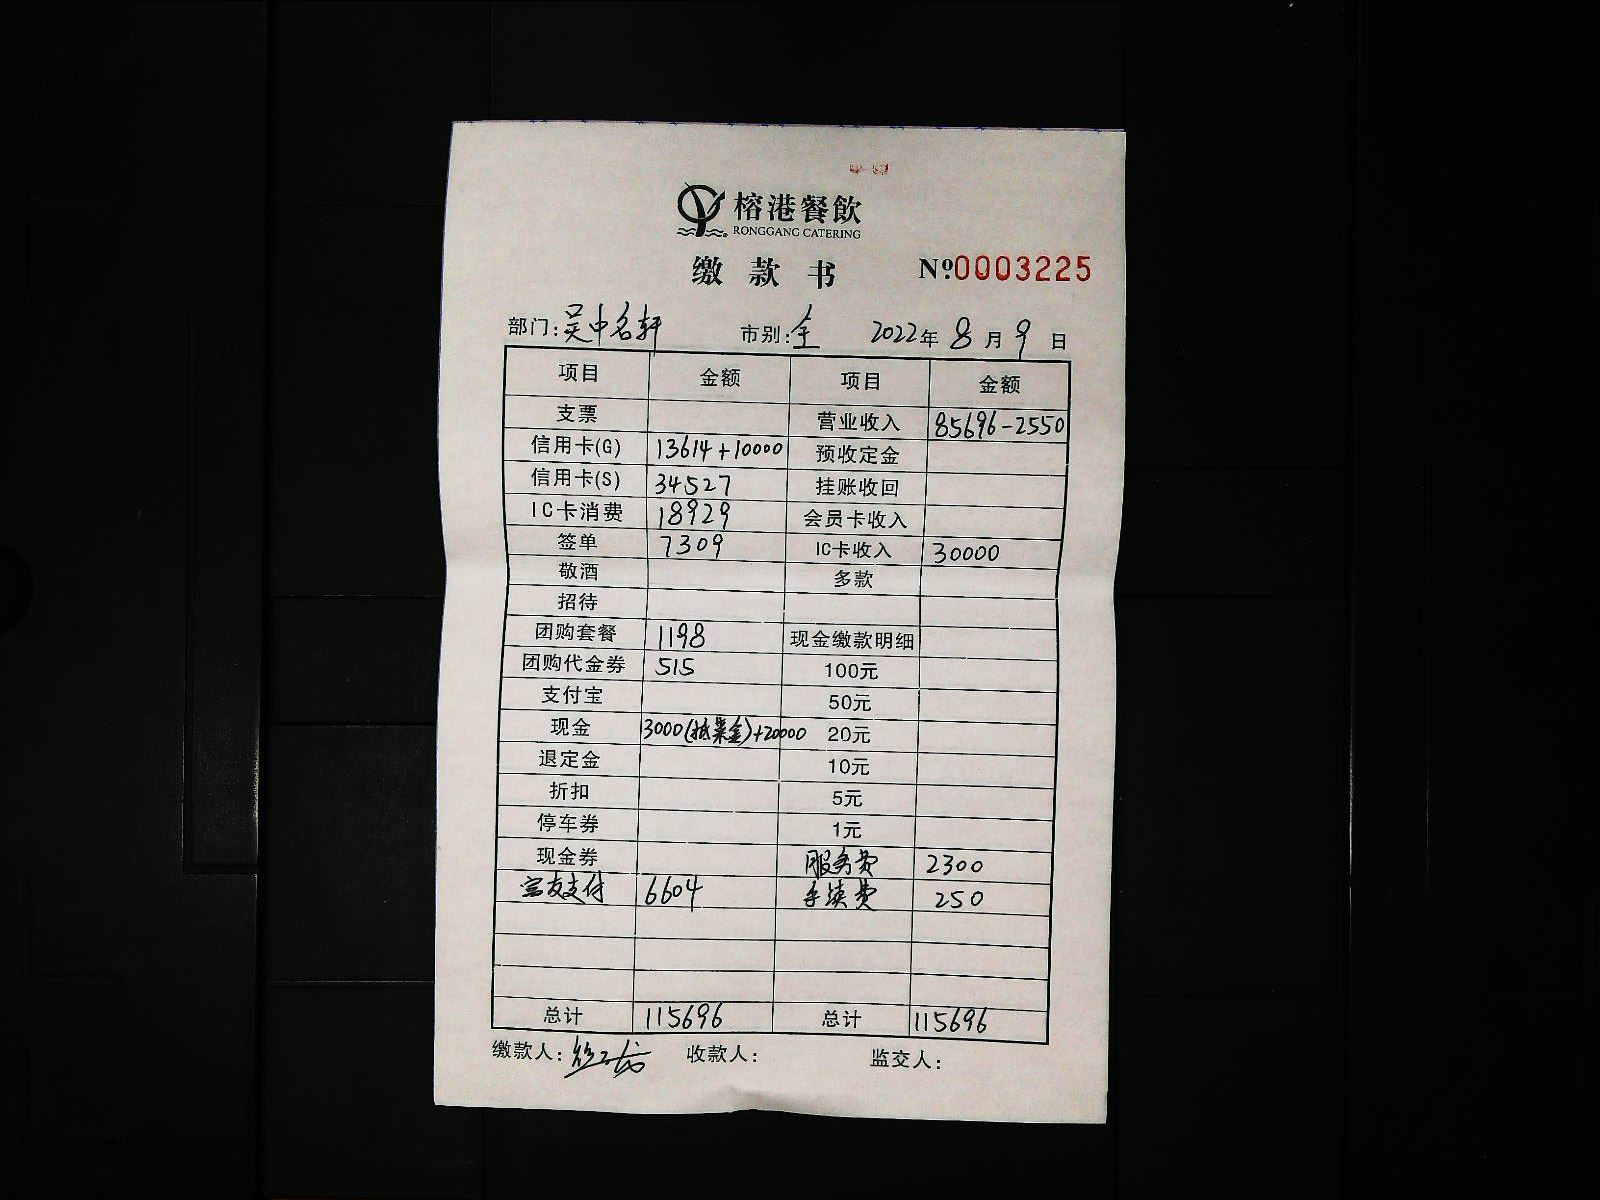 榕港餐飲
RONGGANG CATERING
缴款书 №0003225
部门:吴中名轩 市别:全 2022年8月9日
项目 金额 项目 金额
支票 营业收入 85696-2550
信用卡(G) 13614+10000 预收定金
信用卡(S) 34527 挂账收回
IC卡消费 18929 会员卡收入
签单 7309 IC卡收入 30000
敬酒 多款
招待
团购套餐 1198 现金缴款明细
团购代金券 515 100元
支付宝 50元
现金 3000(抵菜金)+20000 20元
退定金 10元
折扣 5元
停车券 1元
现金券 服务费 2300
支付 6604 手续费 250
总计 115696 总计 115696
缴款人: 收款人: 监交人: